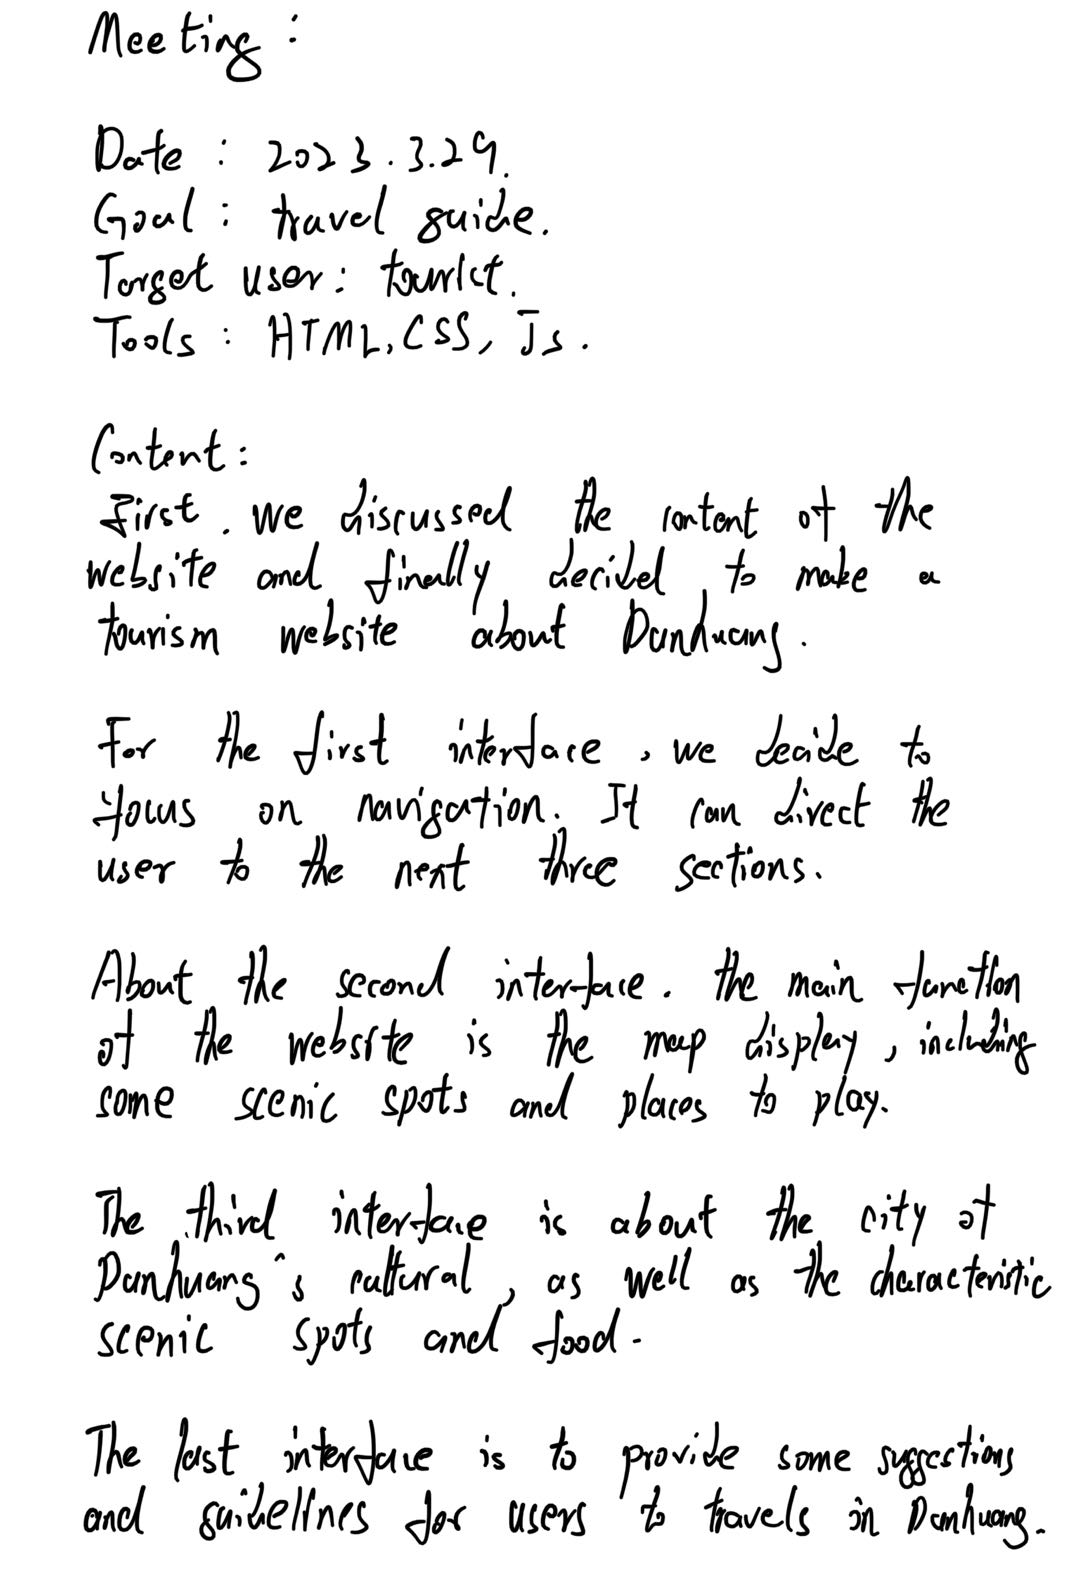 Meeting :
Date : 2023.3.29.
Goal : travel guide.
Target user : tourist.
Tools : HTML, CSS, Js.
Content :
First. we discussed the content of the
website and finally decided to make a
tourism website about Dunhuang.
For the first interface, we decide to
focus on navigation. It can direct the
user to the next three sections.
About the second interface. the main function
of the website is the map display, including
some scenic spots and places to play.
The third interface is about the city of
Dunhuang's cultural, as well as the characteristic
scenic spots and food.
The last interface is to provide some suggestions
and guidelines for users to travels in Dunhuang.